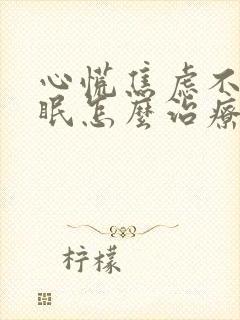 心慌焦虑不
眠怎麼治療
柠檬